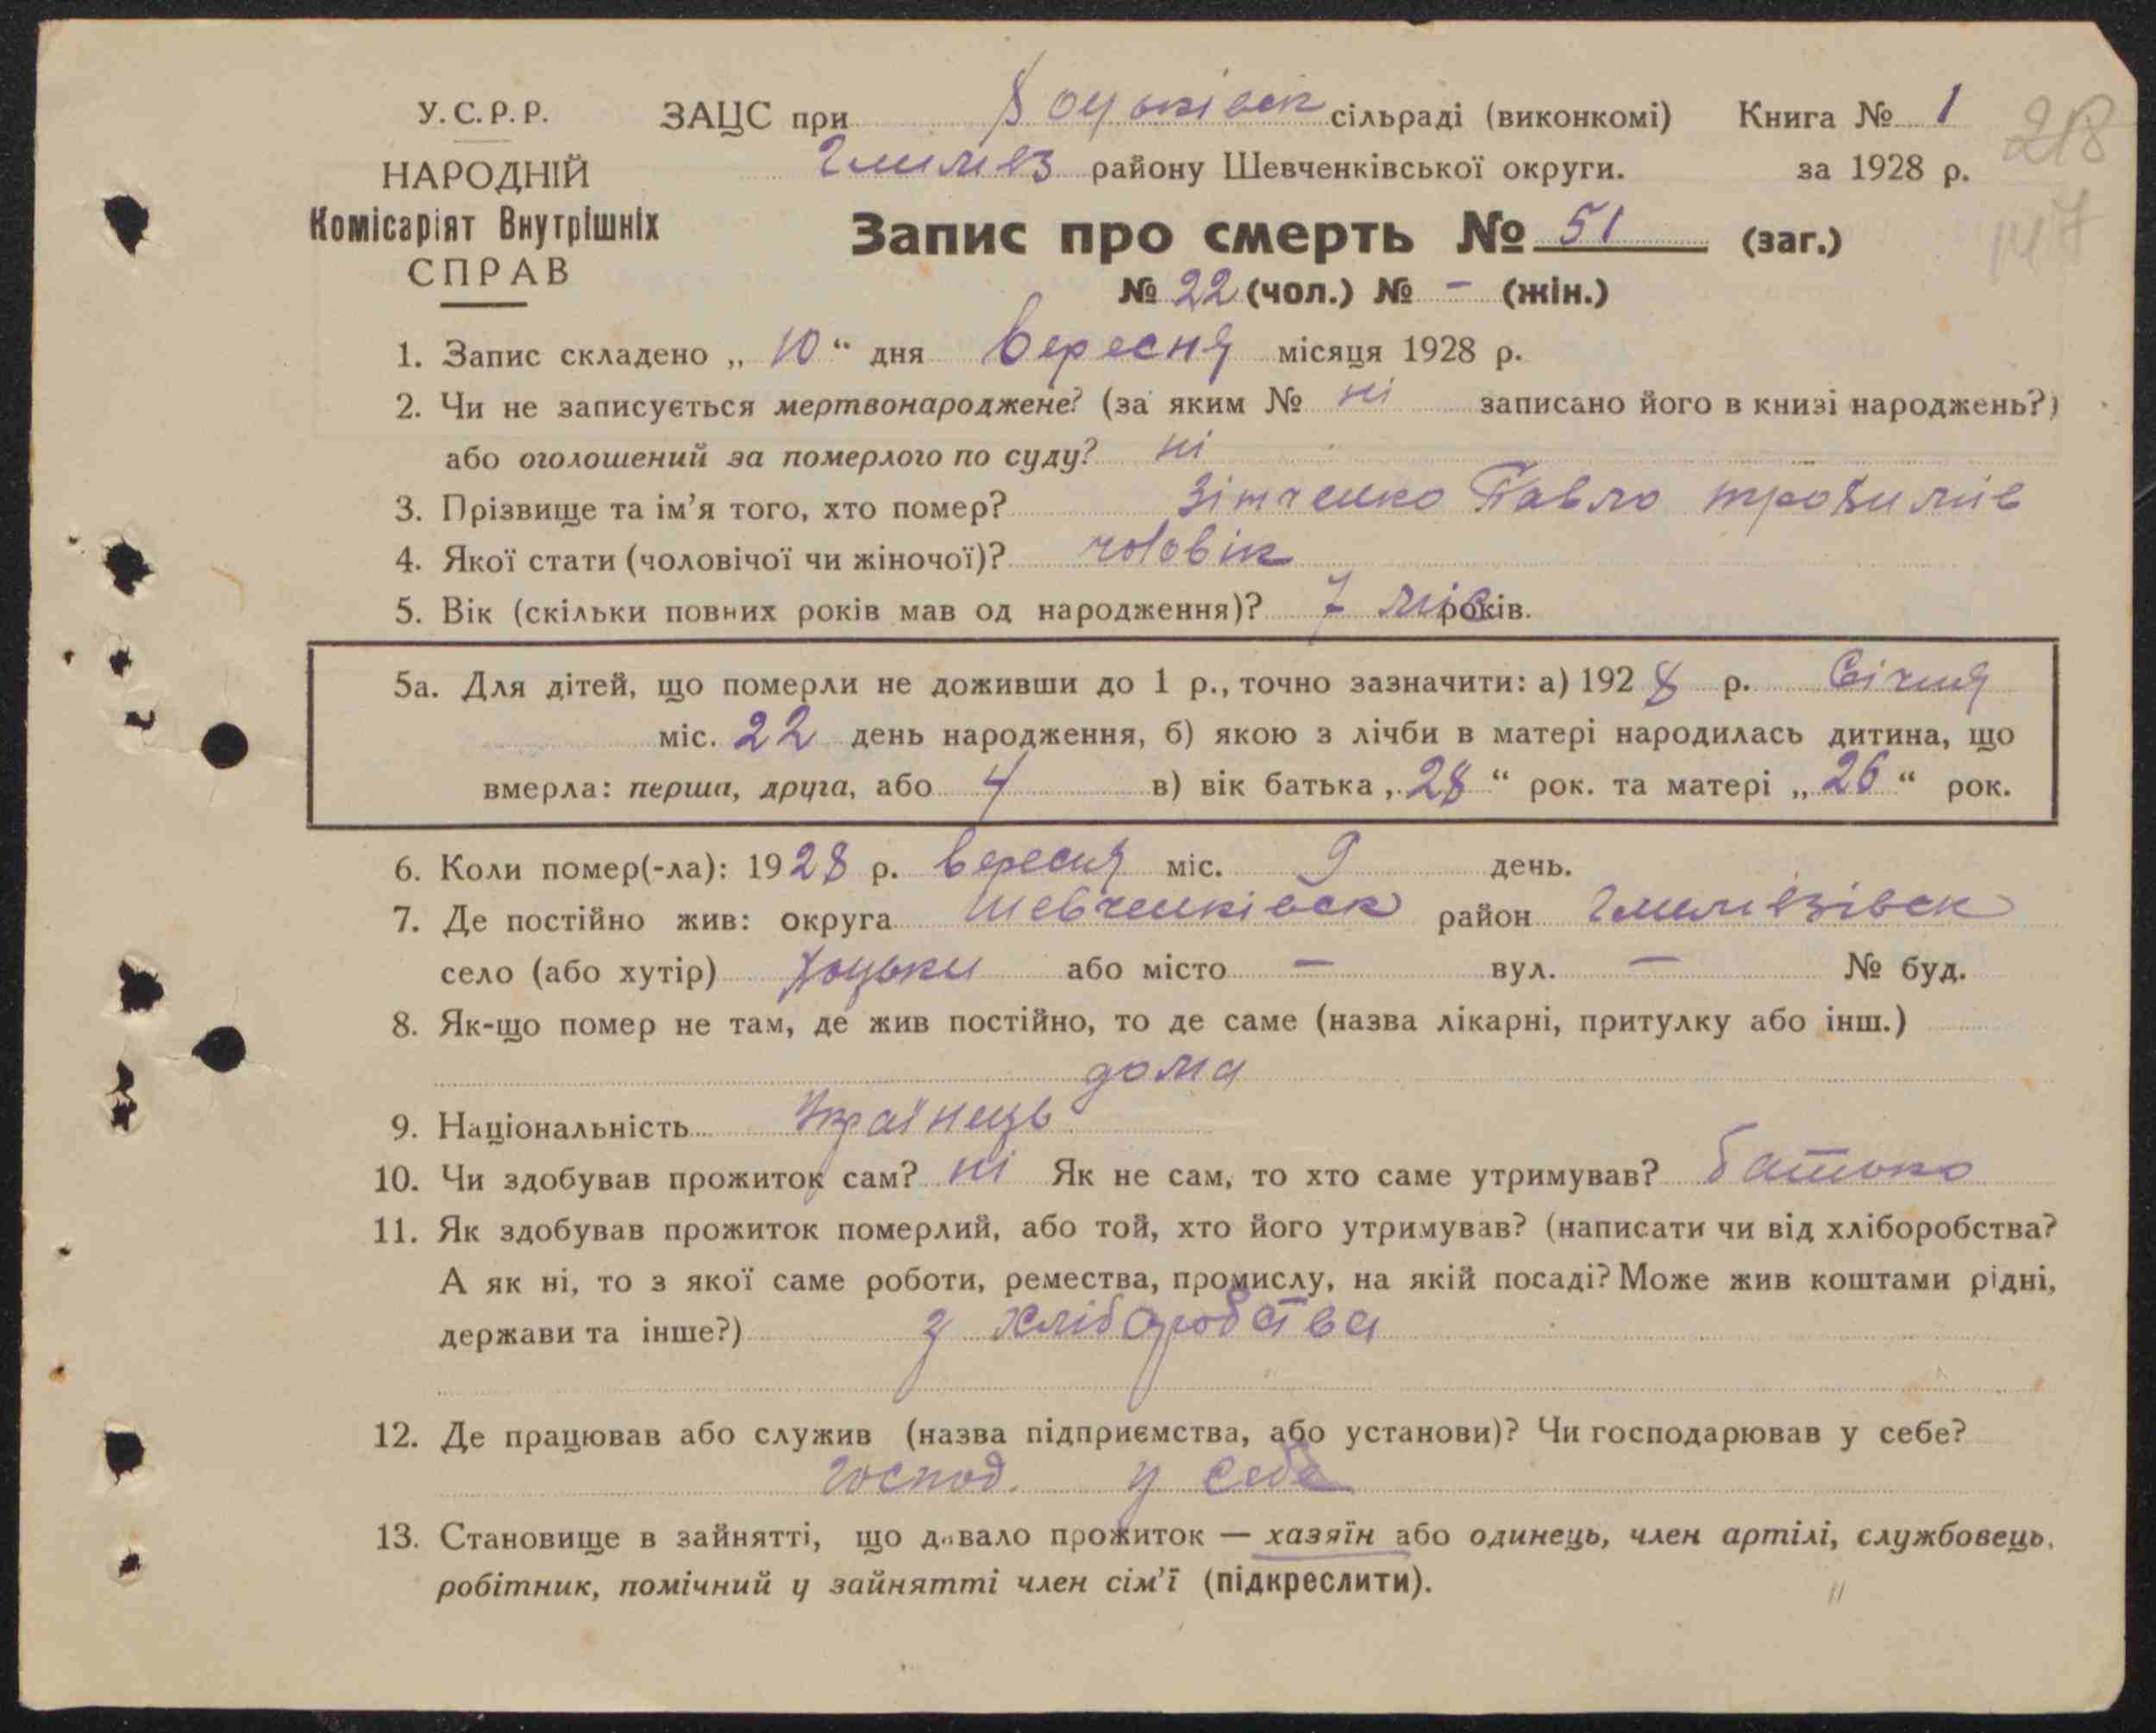 У.С.Р.Р. ЗАЦС при Хоцьківск сільраді (виконкомі) Книга № 1
Гмиляз району Шевченківської округи. за 1928 р. 218
НАРОДНІЙ
Комісаріят Внутрішніх
СПРАВ
Запис про смерть № 51 (заг.) 147
№ 22 (чол.) № - (жін.)
1. Запис складено „ 10 “ дня вересня місяця 1928 р.
2. Чи не записується мертвонароджене? (за яким № ні записано його в книзі народжень?)
або оголошений за померлого по суду? ні
3. Прізвище та ім’я того, хто помер? Зітченко Павло трохимів
4. Якої стати (чоловічої чи жіночої)? чоловік
5. Вік (скільки повних років мав од народження)? 7 міс років.
5а. Для дітей, що померли не доживши до 1 р., точно зазначити: а) 1928 р. Січня
міс. 22 день народження, б) якою з лічби в матері народилась дитина, що
вмерла: перша, друга, або 4 в) вік батька „ 28 “ рок. та матері „ 26 “ рок.
6. Коли помер(-ла): 1928 р. вересня міс. 9 день.
7. Де постійно жив: округа Шевченківск район Гмилязівск
село (або хутір) Хоцьки або місто — вул. — № буд.
8. Як-що помер не там, де жив постійно, то де саме (назва лікарні, притулку або інш.)
дома
9. Національність Українець
10. Чи здобував прожиток сам? ні Як не сам, то хто саме утримував? батько
11. Як здобував прожиток померлий, або той, хто його утримував? (написати чи від хліборобства?
А як ні, то з якої саме роботи, ремества, промислу, на якій посаді? Може жив коштами рідні,
держави та інше?) з хліборобства
12. Де працював або служив (назва підприємства, або установи)? Чи господарював у себе?
господ. у себе
13. Становище в зайнятті, що давало прожиток — хазяїн або одинець, член артілі, службовець,
робітник, помічний у зайнятті член сім’ї (підкреслити).